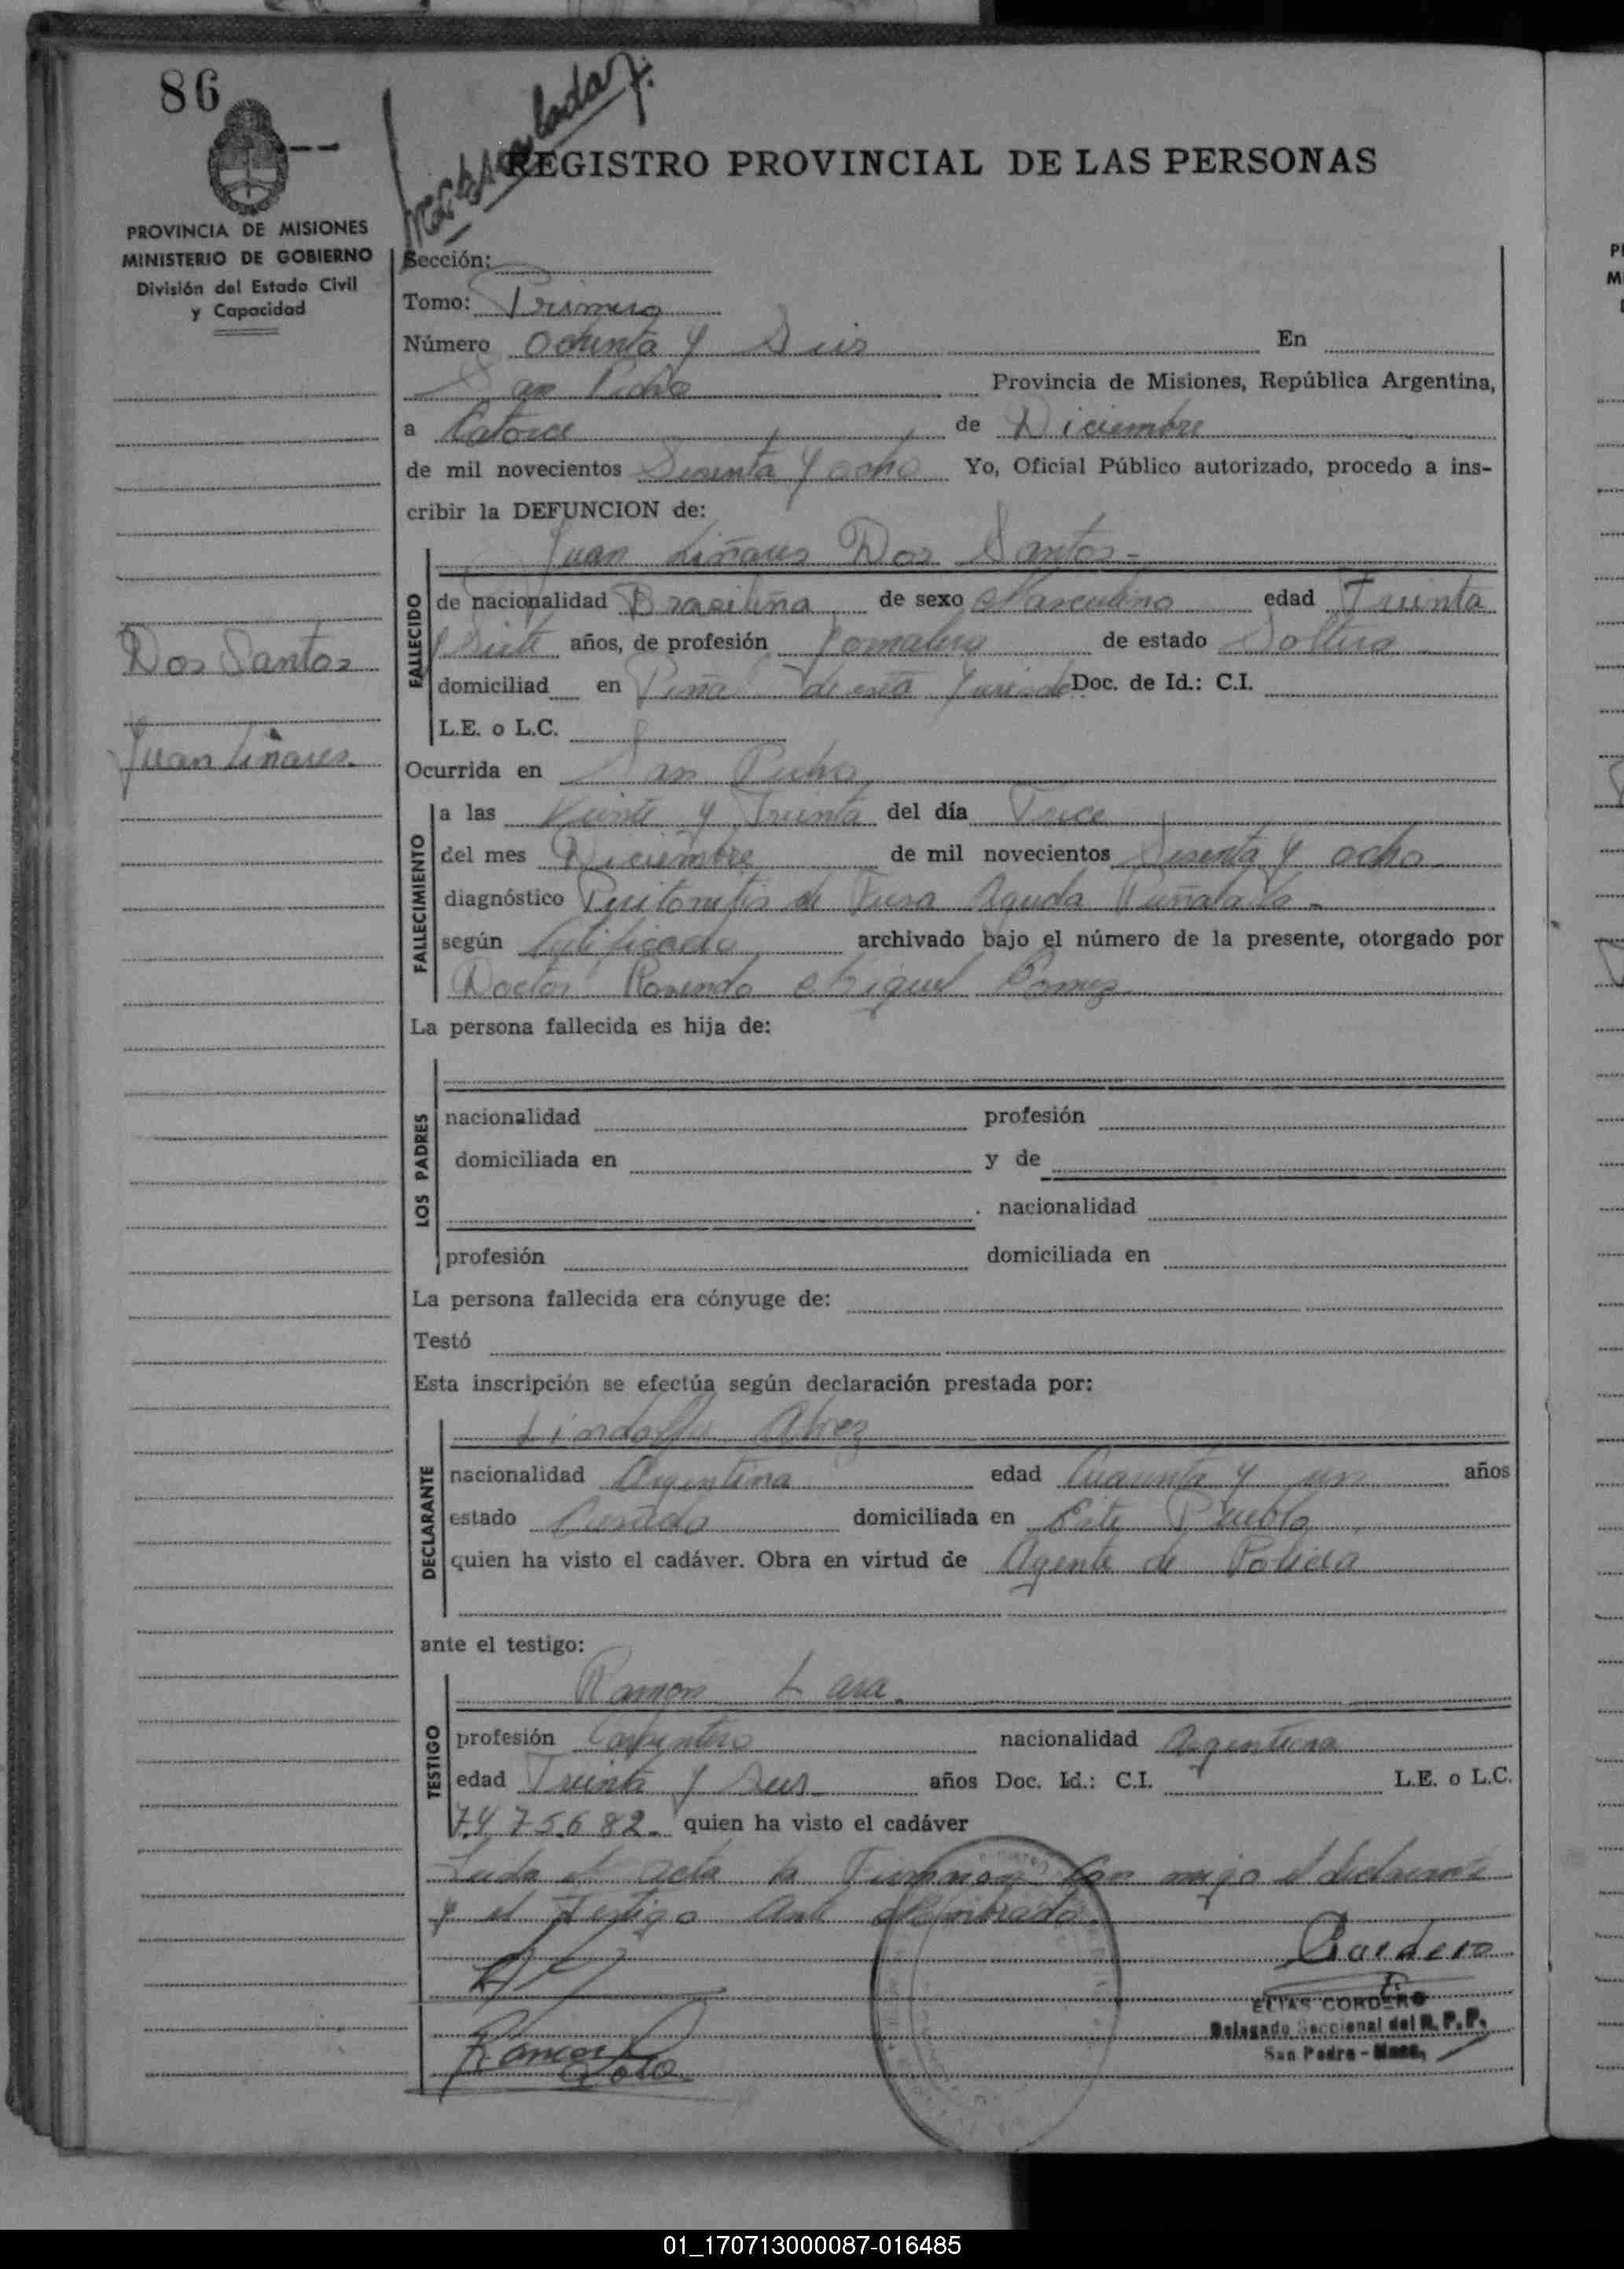 86
REGISTRO PROVINCIAL DE LAS PERSONAS
PROVINCIA DE MISIONES
MINISTERIO DE GOBIERNO
División del Estado Civil
y Capacidad
Dos Santos
Juan Liñares
Sección:
Tomo: Primero
Número Ochenta y Seis En
San Pedro Provincia de Misiones, República Argentina,
a Catorce de Diciembre
de mil novecientos Sesenta y ocho Yo, Oficial Público autorizado, procedo a ins-
cribir la DEFUNCION de:
Juan Liñares Dos Santos-
FALLECIDO
de nacionalidad Brasileña de sexo Masculino edad Treinta
y Siete años, de profesión Jornalero de estado Soltero
domiciliad en de esta Doc. de Id.: C.I.
L.E. o L.C.
Ocurrida en San Pedro
FALLECIMIENTO
a las Veinte y Treinta del día Trece
del mes Diciembre de mil novecientos Sesenta y ocho
diagnóstico de Aguda Puñalada-
según Certificado archivado bajo el número de la presente, otorgado por
Doctor Rosendo Miguel Gomez
La persona fallecida es hija de:
LOS PADRES
nacionalidad profesión
domiciliada en y de
. nacionalidad
profesión domiciliada en
La persona fallecida era cónyuge de:
Testó
Esta inscripción se efectúa según declaración prestada por:
DECLARANTE
nacionalidad Argentina edad Cuarenta y un años
estado Casado domiciliada en Este Pueblo
quien ha visto el cadáver. Obra en virtud de Agente de Policia
ante el testigo:
TESTIGO
Ramon Lara.
profesión Carpintero nacionalidad Argentina
edad Treinta y Seis años Doc. Id.: C.I. L.E. o L.C.
7475682- quien ha visto el cadáver
Leida el acta la Firman con migo el declarante
y el Testigo Ante
Cordero
ELIAS CORDERO
Delegado Seccional del R. P. P.
San Pedro - Mnes.
Ramon
01_170713000087-016485